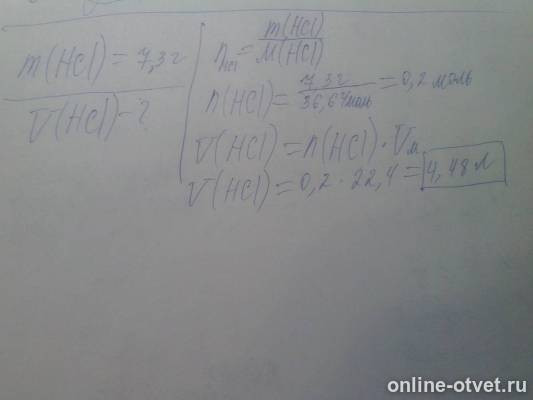 m(HCl) = 7,3г
V(HCl) - ?
n HCl = m(HCl) / M(HCl)
n(HCl) = 7,3г / 36,6г/моль = 0,2 моль
V(HCl) = n(HCl) · Vм
V(HCl) = 0,2 · 22,4 = 4,48 л
online-otvet.ru